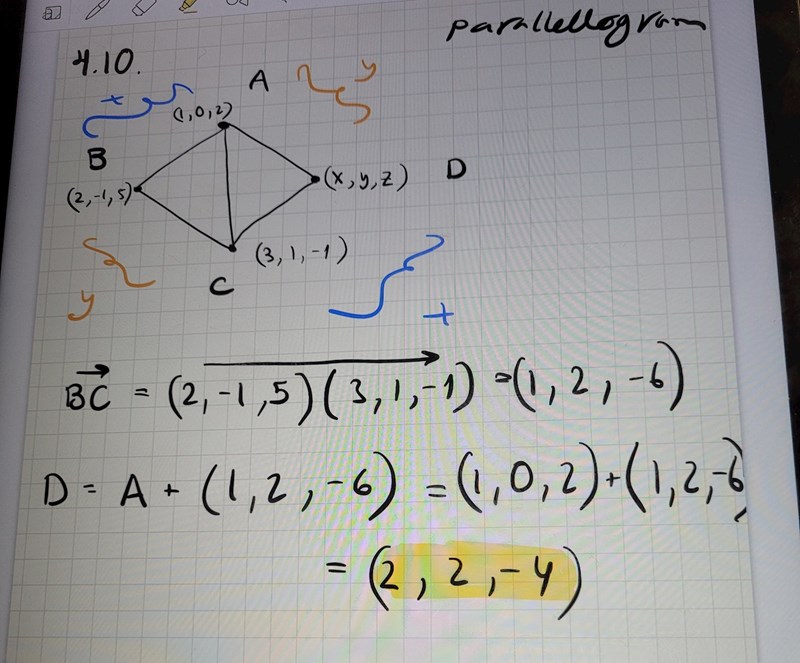 parallellogram
4.10.
A
y
+
(1,0,2)
B
(2,-1,5)
(x,y,z)
D
(3,1,-1)
C
y
+
BC = (2,-1,5)(3,1,-1) = (1,2,-6)
D = A + (1,2,-6) = (1,0,2)+(1,2,-6)
= (2,2,-4)